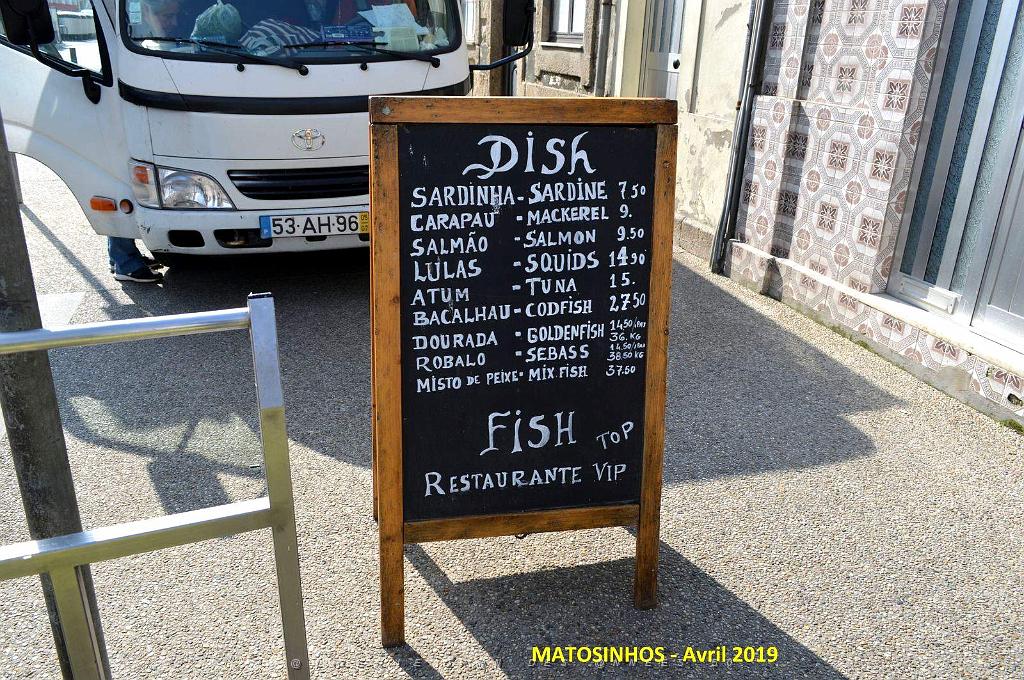 Dish
SARDINHA - SARDINE 7,50
CARAPAU - MACKEREL 9.
SALMÃO - SALMON 9.50
LULAS - SQUIDS 14,90
ATUM - TUNA 15.
BACALHAU - CODFISH 27,50
DOURADA - GOLDENFISH 14,50
36. KG
ROBALO - SEBASS 14,50
38.50 KG
MISTO DE PEIXE - MIX FISH 37.50
FISH TOP
RESTAURANTE VIP
53-AH-96
MATOSINHOS - Avril 2019